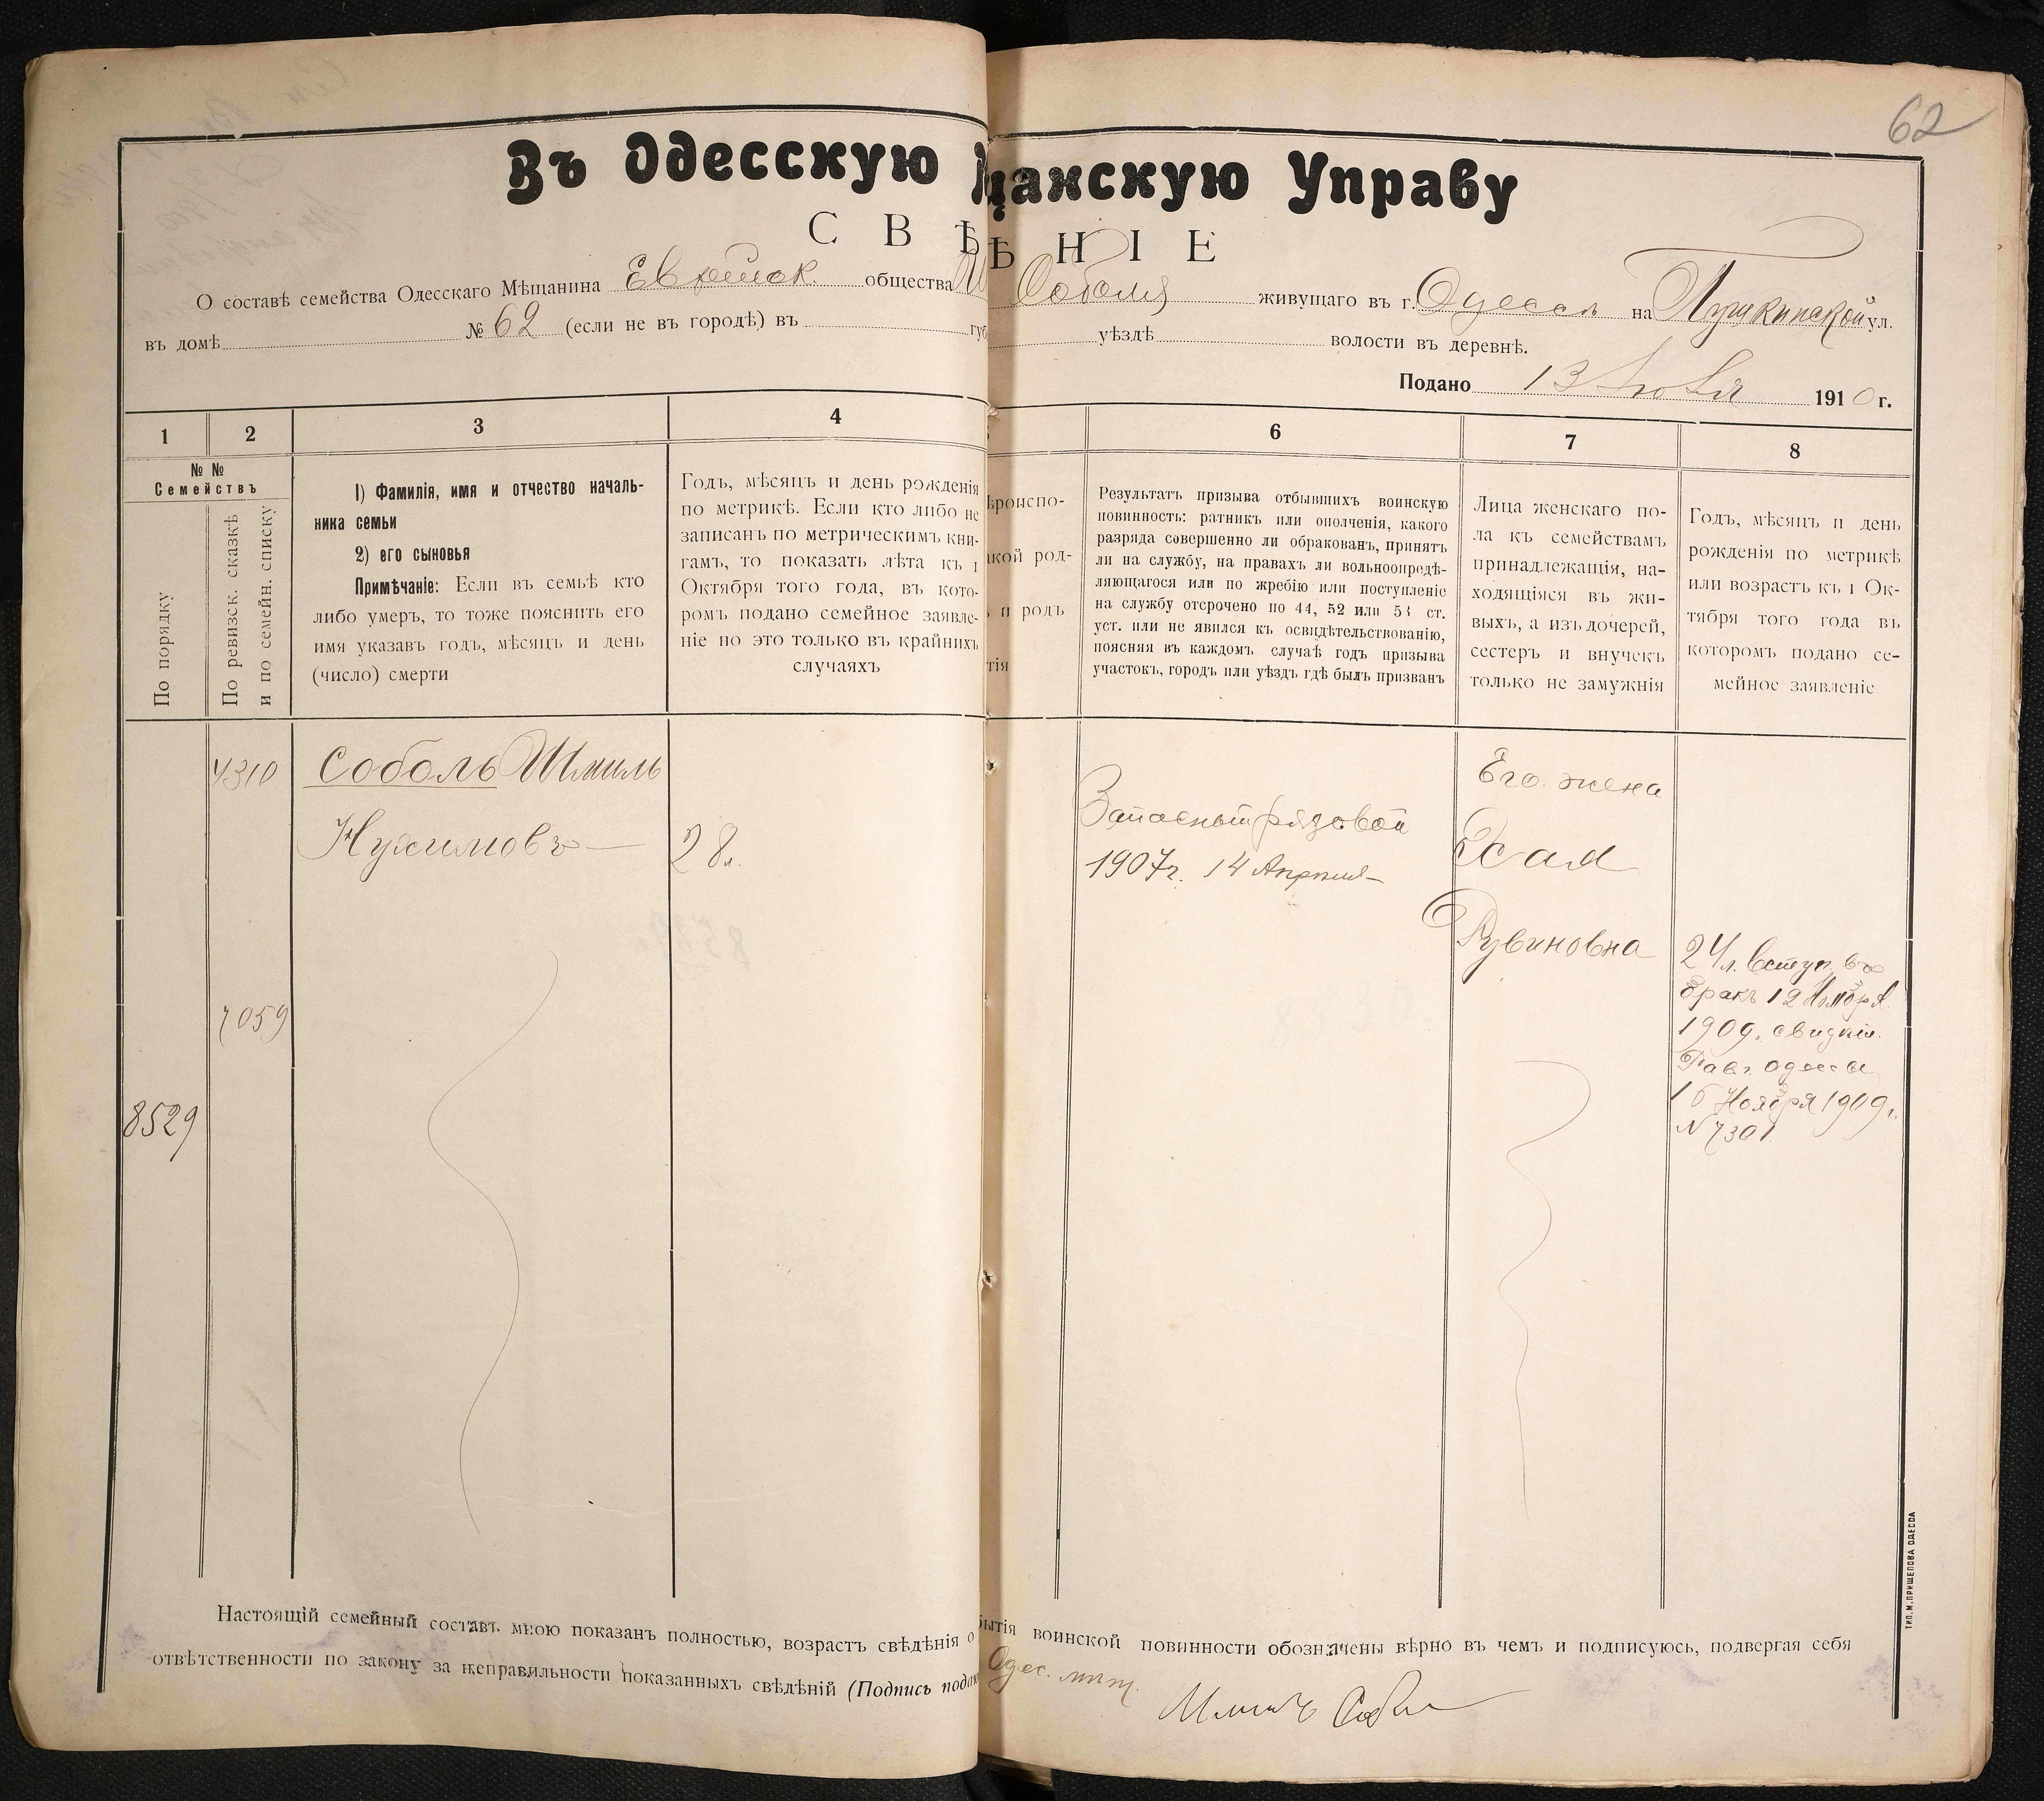 62
Въ Одесскую щанскую Управу
СВѢ ѢНІЕ
О составѣ семейства Одесскаго Мѣщанина Еврейск. общества Соболя живущаго въ г. Одесса на Пушкинской ул.
въ домѣ № 62 (если не въ городѣ) въ уѣздѣ волости въ деревнѣ.
Подано 13 1910 г.
1 2 3 4 6 7 8
№ №
Семействъ
По порядку
По ревизск. сказкѣ
и по семейн. списку
1) Фамилія, имя и отчество началь-
ника семьи
2) его сыновья
Примѣчаніе: Если въ семьѣ кто
либо умеръ, то тоже пояснить его
имя указавъ годъ, мѣсяцъ и день
(число) смерти
Годъ, мѣсяцъ и день рожденія
по метрикѣ. Если кто либо не
записанъ по метрическимъ кни-
гамъ, то показать лѣта къ 1
Октября того года, въ кото-
ромъ подано семейное заявле-
ніе но это только въ крайнихъ
случаяхъ
ѣроиспо-
акой род-
и родъ
тія
Результатъ призыва отбывшихъ воинскую
повинность: ратникъ или ополченія, какого
разряда совершенно ли обракованъ, принятъ
ли на службу, на правахъ ли вольноопредѣ-
ляющагося или по жребію или поступленіе
на службу отсрочено по 44, 52 или 53 ст.
уст. или не явился къ освидѣтельствованію,
поясняя въ каждомъ случаѣ годъ призыва
участокъ, городъ или уѣздъ гдѣ былъ призванъ
Лица женскаго по-
ла къ семействамъ
принадлежащія, на-
ходящіяся въ жи-
выхъ, а изъ дочерей,
сестеръ и внучекъ
только не замужнія
Годъ, мѣсяцъ и день
рожденія по метрикѣ
или возрастъ къ 1 Ок-
тября того года въ
которомъ подано се-
мейное заявленіе
4310
Соболь Шмиль
Нухимовъ
28 л.
Запасный рядовой
1907 г. 14 Апрѣля
Его жена
Хая
Рувиновна
24 л. Вступ. въ
бракъ 12 Ноября
1909. свидѣт.
Рав. Одессы
16 Ноября 1909 г.
N 7301
7059
8529
Настоящій семейный составъ мною показанъ полностью, возрастъ свѣдѣнія о бытія воинской повинности обозначены вѣрно въ чемъ и подписуюсь, подвергая себя
отвѣтственности по закону за неправильности показанныхъ свѣдѣній (Подпись пода Одес. мѣщ.
Шмиль Соболь
ТИП. М. ПРИЩЕПОВА ОДЕССА